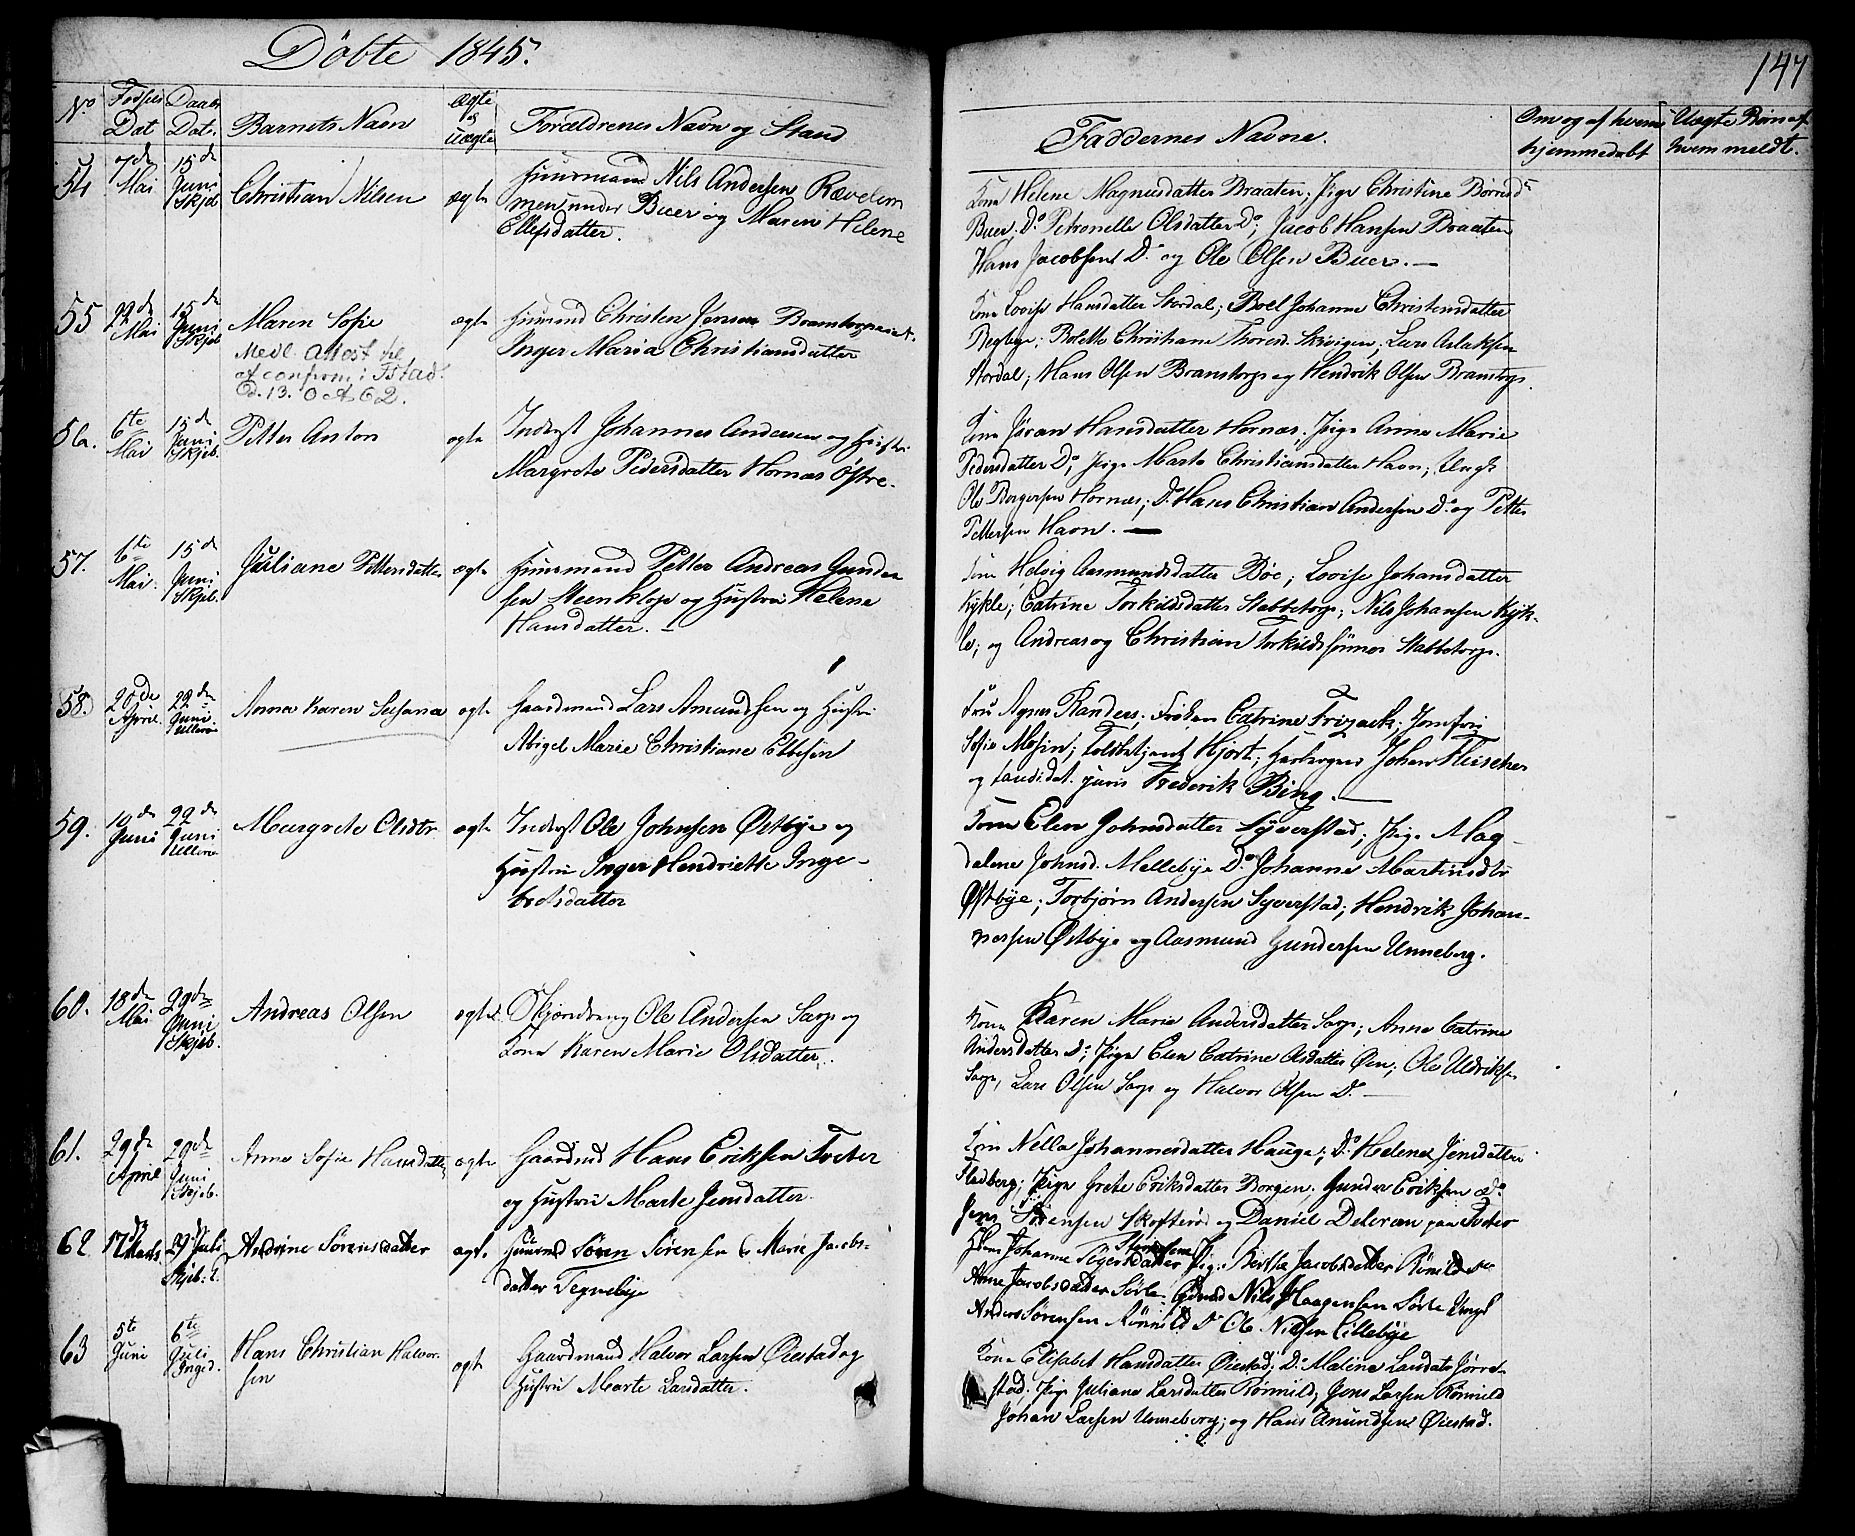 Döbte 1845.
147
No
Födsels Dat
Daabs Dat.
Barnets Navn
Ægte og Uægte
Forældrenes Navn og Stand
Faddernes Navne.
Om og af hvem hjemmedøbt
Uægte Börn af hvem meldt.
54 7de Mai 15de Juni Skjeb Christian Nilsen ægte Huusmand Nils Andersen Rævedim
men under Buer og Maren Helene
Ellefsdatter.
Kone Helene Magnusdatter Braaten; Pige Christine Börresd
Buer, Do Petronelle Olsdatter Do; Jacob Hansen Braaten
Hans Jacobsen Do og Ole Olsen Buer. —
55 22de Mai 15de Juni Skjeb Maren Sofie ægte Huusmand Christen Jensen
Inger Maria Christiansdatter
Medd. Attest til
at confirm. i Fstad.
Ed. 13. O A 62.
Kone Lovise Hansdatter Stordal; Boel Johanne Christensdatter
Bolette Christiane Thoresd. Skivigen; Lars Aslaksen
Stordal; Hans Olsen Branstorp og Hendrik Olsen Branstorp.
56. 6te Mai 15de Juni Skjeb. Petter Anton ægte Inderst Johannes Andersen og Hustru
Margrete Pedersdatter Hornæs Östre.
Kone Jöran Hansdatter Hornæs; Pige Anne Marie
Pedersdatter Do; Pige Marte Christiansdatter Havn; Ungk
Ole Borgersen Hornæs; Do Hans Christian Andersen Do og Petter
Pettersen Havn. —
57. 6te Mai. 15de Juni Skjeb. Juliane Pettersdatter ægte Huusmand Petter Andreas Gunder
sen Steenklop og Hustru Helene
Hansdatter. —
Kone Helvig Aasmundsdatter Böe; Lovise Johansdatter
Kykle; Catrine Torkildsdatter Stabbetorp; Nils Johansen Kyk-
le; og Andreas og Christian Torkildssönner Stabbetorp.
58. 20de April 22de Juni Ullerøe Anna Karen Susana ægte Gaardmand Lars Amundsen og Hustru
Abigel Marie Christiane Ebbesen
Fru Agnes Randers; Fröken Catrine Frizack; Jomfru
Sofie Mosin; Toldbetjent Hjort; Johan Fleischer
og Candidat juris Frederik Bing. —
59. 10de Juni 22de Juni Ullerøe Margrete Olsdtr ægte Inderst Ole Johnsen Østbye og
Hustru Inger Hendriette Inge-
bretsdatter
Kone Elen Johnsdatter Syverstad; Pige Mag
dalene Johnsd. Mellebye Do Johanne Martinsdtr
Østbye; Torbjörn Andersen Syverstad; Hendrik Johan-
nessen Østbye og Aasmund Gundersen Unneberg.
60. 18de Mai 29de Juni Skjeb. Andreas Olsen ægte Ole Andersen Sarp og
Kone Karen Marie Olsdatter.
Kone Karen Marie Andersdatter Sarp; Anne Catrine
Andersdatter Do; Pige Elen Catrine Olsdatter Øen; Ole Uldriksen
Sarp, Lars Olsen Sarp og Halvor Olsen Do —
61. 29de April 29de Juni Skjeb. Anne Sofie Hansdatter ægte Gaardmd Hans Eriksen Tveter
og Hustru Marte Jensdatter.
Kone Nella Johannesdatter Hauge; Do Helene Jensdatter
Fladberg; Pige Grete Eriksdatter Borgen; Gunder Eriksen Do
Jens Sörensen Skofteröd og Daniel Deleran paa Tveter
62 17de Marts 29 Juli Skjeb: k. Andrine Sörensdatter ægte. Huusmd Sören Sörensen & Marie Jacobs-
datter Tegnebye
Kone Johanne Sigersdatter Pige Berthe Jacobsdatter Rönild Do
Anne Jacobsdatter Sörle. Gdmd Nils Haagensen Sörle Ungk
Anders Sörensen Rönild Do Ole Nilsen Lillebye
63 5te Juni 6te Juli Ingid. Hans Christian Halvor-
sen ægte Gaardmand Halvor Larsen Øiestad og
Hustru Marte Larsdatter.
Kone Elisabet Hansdatter Øiestad; Do Maline Larsdatr Jörre-
stad; Pige Juliane Larsdatter Rönnild; Jens Larsen Rönnild
Johan Larsen Unneberg; og Hans Amundsen Øiestad.